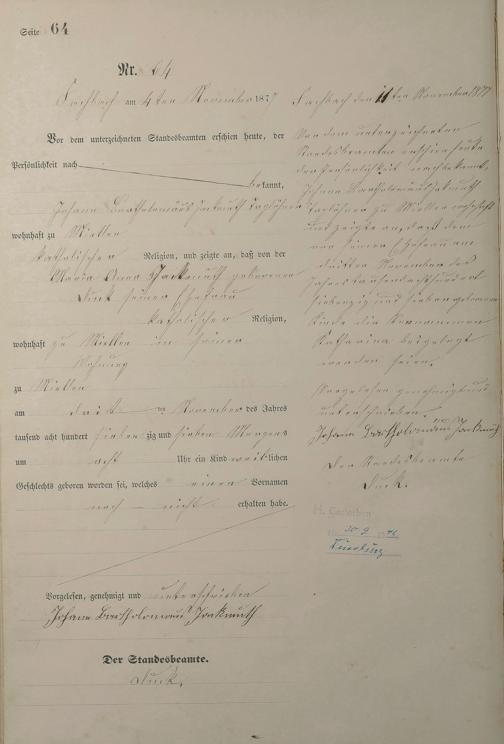 Seite 64
Nr. 64
Fachbach am 4ten November 1877
Vor dem unterzeichneten Standesbeamten erschien heute, der
Persönlichkeit nach
bekannt,
Johann Bartholomäus Tagelöhner
wohnhaft zu Miellen
katholischer Religion, und zeigte an, daß von der
Maria Anna geborenen
seiner Ehefrau
katholischer Religion,
wohnhaft zu Miellen in seiner
Wohnung
zu Miellen
am November des Jahres
tausend acht hundert sieben zig und sieben Morgens
um acht Uhr ein Kind weiblichen
Geschlechts geboren worden sei, welches einen Vornamen
noch nicht erhalten habe.
Vorgelesen, genehmigt und unterschrieben
Johann Bartholomäus
Der Standesbeamte.
Fachbach den 11ten November 1877
Vor dem unterzeichneten
Standesbeamten erschien heute
der Persönlichkeit nach bekannt,
Johann Bartholomäus
Tagelöhner zu Miellen wohnhaft
und zeigte an, daß dem
von seiner Ehefrau am
dritten November des
Jahres tausendachthundert
siebenzig und sieben geborenen
Kinde die Vornamen
Katharina beigelegt
worden seien.
Vorgelesen genehmigt und
unterschrieben
Johann Bartholomäus
Der Standesbeamte